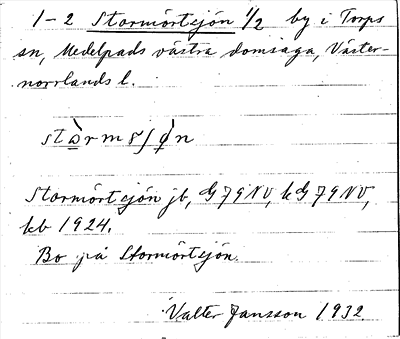 1-2 Stormörtsjön 1/2 by i Torps
sn, Medelpads västra domsaga, Väster-
norrlands l.
Stormörtsjön jb, G 79 NV, kG 79 NV,
kb 1924.
Bo på Stormörtsjön.
Valter Jansson 1932.